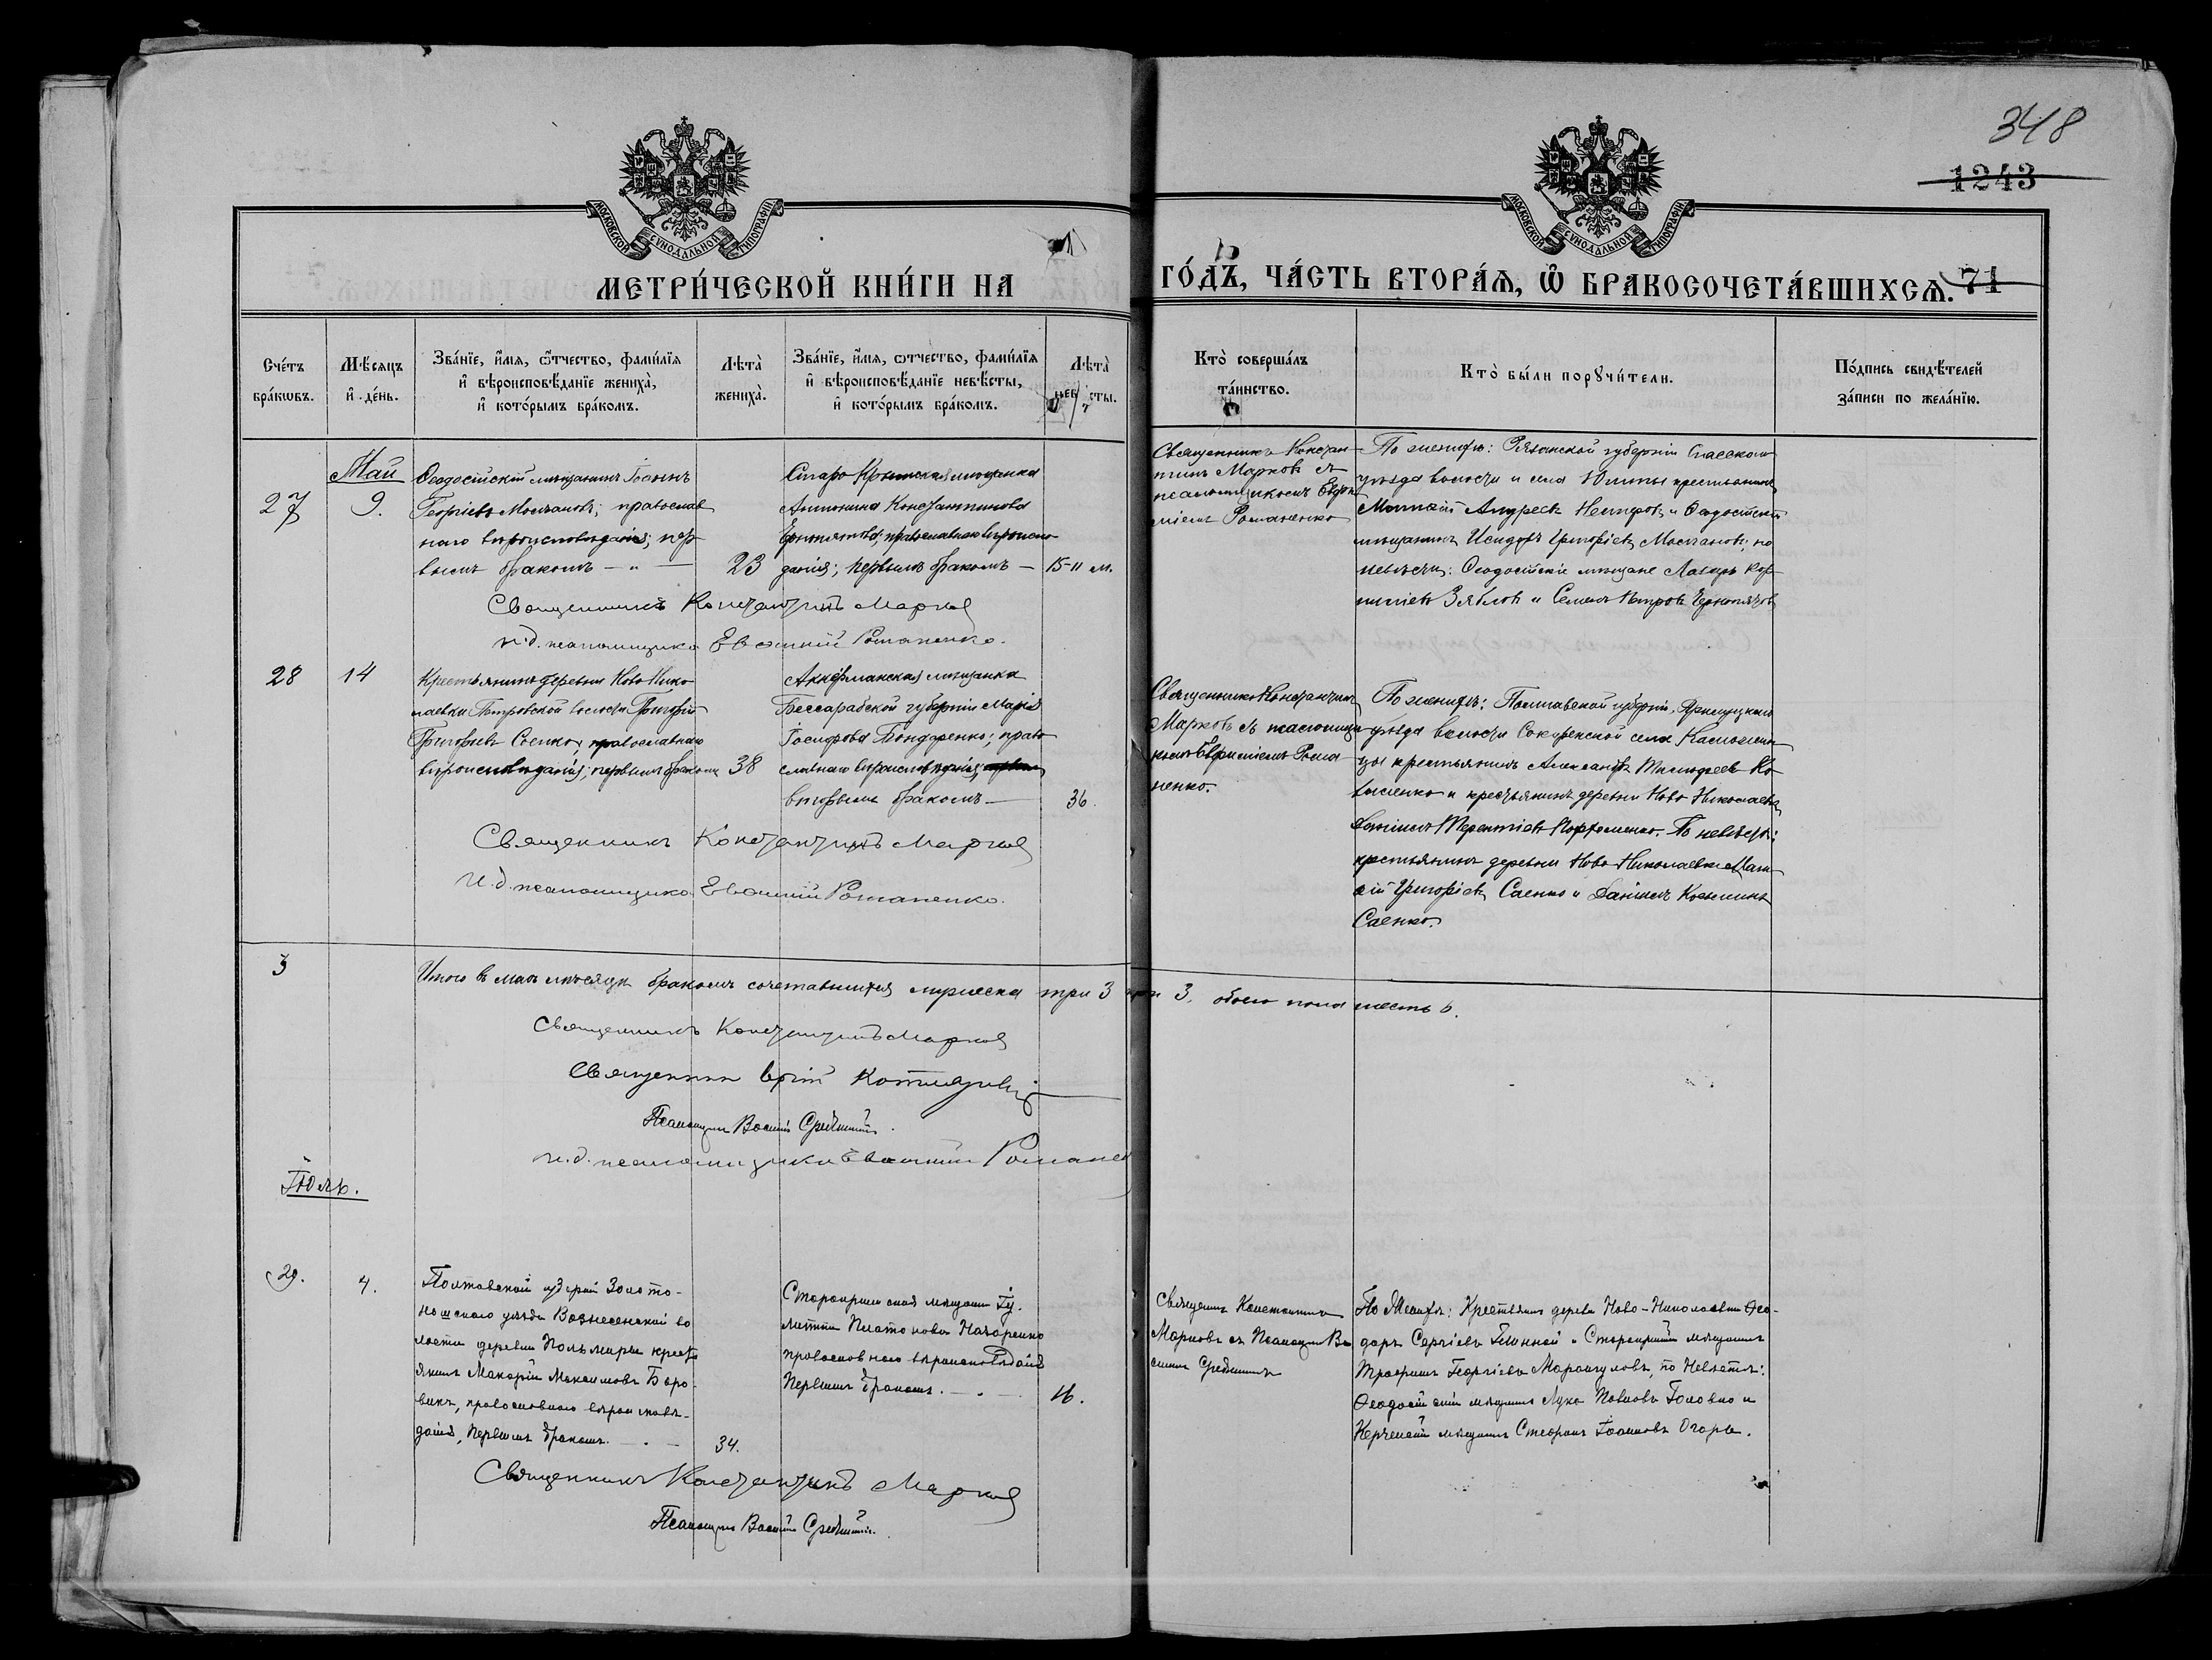 348
1243
МОСКОВСКОЙ СѴНОДАЛЬНОЙ ТИПОГРАФІИ
МОСКОВСКОЙ СѴНОДАЛЬНОЙ ТИПОГРАФІИ
МЕТРИ́ЧЕСКОЙ КНИ́ГИ НА
ГО́ДЪ, ЧА́СТЬ ВТОРА́Ѧ, Ѽ БРАКОСОЧЕТА́ВШИХСѦ. 71
Сче́тъ бра́кѡвъ.
Мѣ́сяцъ и҆ де́нь.
Зва́нїе, и҆́мѧ, ѻ҆́тчество, фами́лїѧ и҆ вѣроисповѣ́данїе жениха̀, и҆ кото́рымъ бра́комъ.
Лѣта̀ жениха̀.
Зва́нїе, и҆́мѧ, ѻ҆́тчество, фами́лїѧ и҆ вѣроисповѣ́данїе невѣ́сты, и҆ кото́рымъ бра́комъ.
Лѣта̀ невѣсты.
Кто̀ соверша́лъ та́инство.
Кто̀ бы́ли порꙋчи́тели.
По́дпись свидѣ́телей за́писи по жела́нїю.
Май
27
9.
Ѳеодосійскій мѣщанинъ Іоаннъ
Георгіевъ Молчановъ; православ
наго вѣроисповѣданія; пер
вымъ бракомъ — „ —
23
Старо-Крымская мѣщанка
Антонина Константинова
православнаго вѣроиспо
данія; первымъ бракомъ —
15-11 м.
Священникъ Констан
тинъ Марковъ съ
псаломщикомъ Евѳи
міемъ Романенко
По женихѣ: Рязанской губерніи Спасскаго
уѣзда волости и села крестьянинъ
Андреевъ и Ѳеодосійскій
мѣщанинъ Исидоръ Григорьевъ Молчановъ; по
невѣстѣ: Ѳеодосійскіе мѣщане Лазарь Кор
ниліевъ Зябловъ и Семенъ Петровъ
Священникъ Константинъ Марковъ
и.д. псаломщика Евѳимій Романенко.
28
14
Крестьянинъ деревни Ново Нико
лаевки Петровской волости Григорій
Григорьевъ Саенко; православнаго
вѣроисповѣданія; первымъ бракомъ
38
Аккерманская мѣщанка
Бессарабской губерніи Марія
Іосифова Бондаренко; право
славнаго вѣроисповѣданія;
вторымъ бракомъ —
36.
Священникъ Константинъ
Марковъ съ псаломщи
комъ Евѳиміемъ Рома
ненко.
По женихѣ: Полтавской губерніи,
уѣзда волости села
крестьянинъ Александръ Тимоѳеевъ
и крестьянинъ деревни Ново Николаевки
Даніилъ Терентіевъ Пархоменко. По невѣстѣ:
крестьянинъ деревни Ново Николаевки
Григорьевъ Саенко и Даніилъ Косьминъ
Саенко.
Священникъ Константинъ Марковъ
И.д. псаломщика Евѳимій Романенко.
3
Итого въ маѣ мѣсяцѣ бракомъ сочетавшихся мужеска три 3 3. обоего пола шесть 6.
Священникъ Константинъ Марковъ
Священникъ
Псаломщикъ Василій
и.д. псаломщика Евѳимій Романен
Іюль.
29.
4.
Полтавской губерніи Золото-
ношскаго уѣзда Вознесенской во
лости деревни Пальмиры кресть
янинъ Макарій Максимовъ Боро-
викъ, православнаго вѣроисповѣ-
данія, первымъ бракомъ. — . —
34.
Старокрымская мѣщанка Іу-
литта Платонова Назаренко
православнаго вѣроисповѣданія
первымъ бракомъ. — . —
16.
Священникъ Константинъ
Марковъ съ Псаломщ. Ва
силіемъ
По Женихѣ: Крестьянинъ деревни Ново-Николаевки Ѳео-
доръ Сергіевъ и Старокрымскій мѣщанинъ
Трофимъ Георгіевъ по Невѣстѣ:
Ѳеодосійскій мѣщанинъ Лука Павловъ Головко и
Керченскій мѣщанинъ Стефанъ Іоанновъ Огарь.
Священникъ Константинъ Марковъ
Псаломщикъ Василій